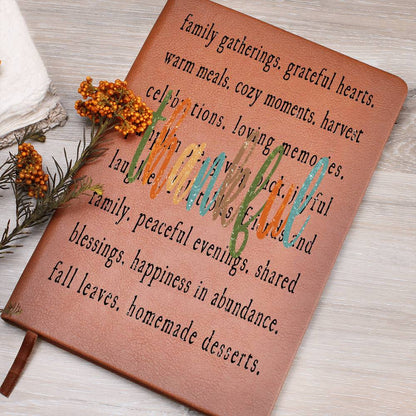 family gatherings. grateful hearts.
warm meals. cozy moments. harvest
celebrations. loving memories.
thankful
family. peaceful evenings. shared
blessings. happiness in abundance.
fall leaves. homemade desserts.